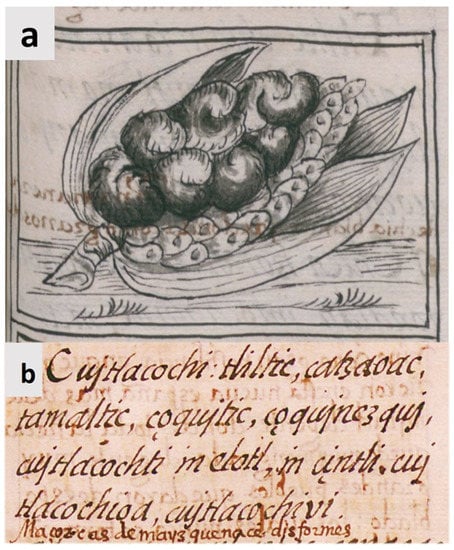 a
b
Cujtlacochi: tliltic, catzaoac,
tamaltic, çoqujtic, çoqujnezquj,
cujtlacochti in elotl, in çintli, cuj
tlacochioa, cujtlacochivi.
Maçorcas de mayz que naçe disformes